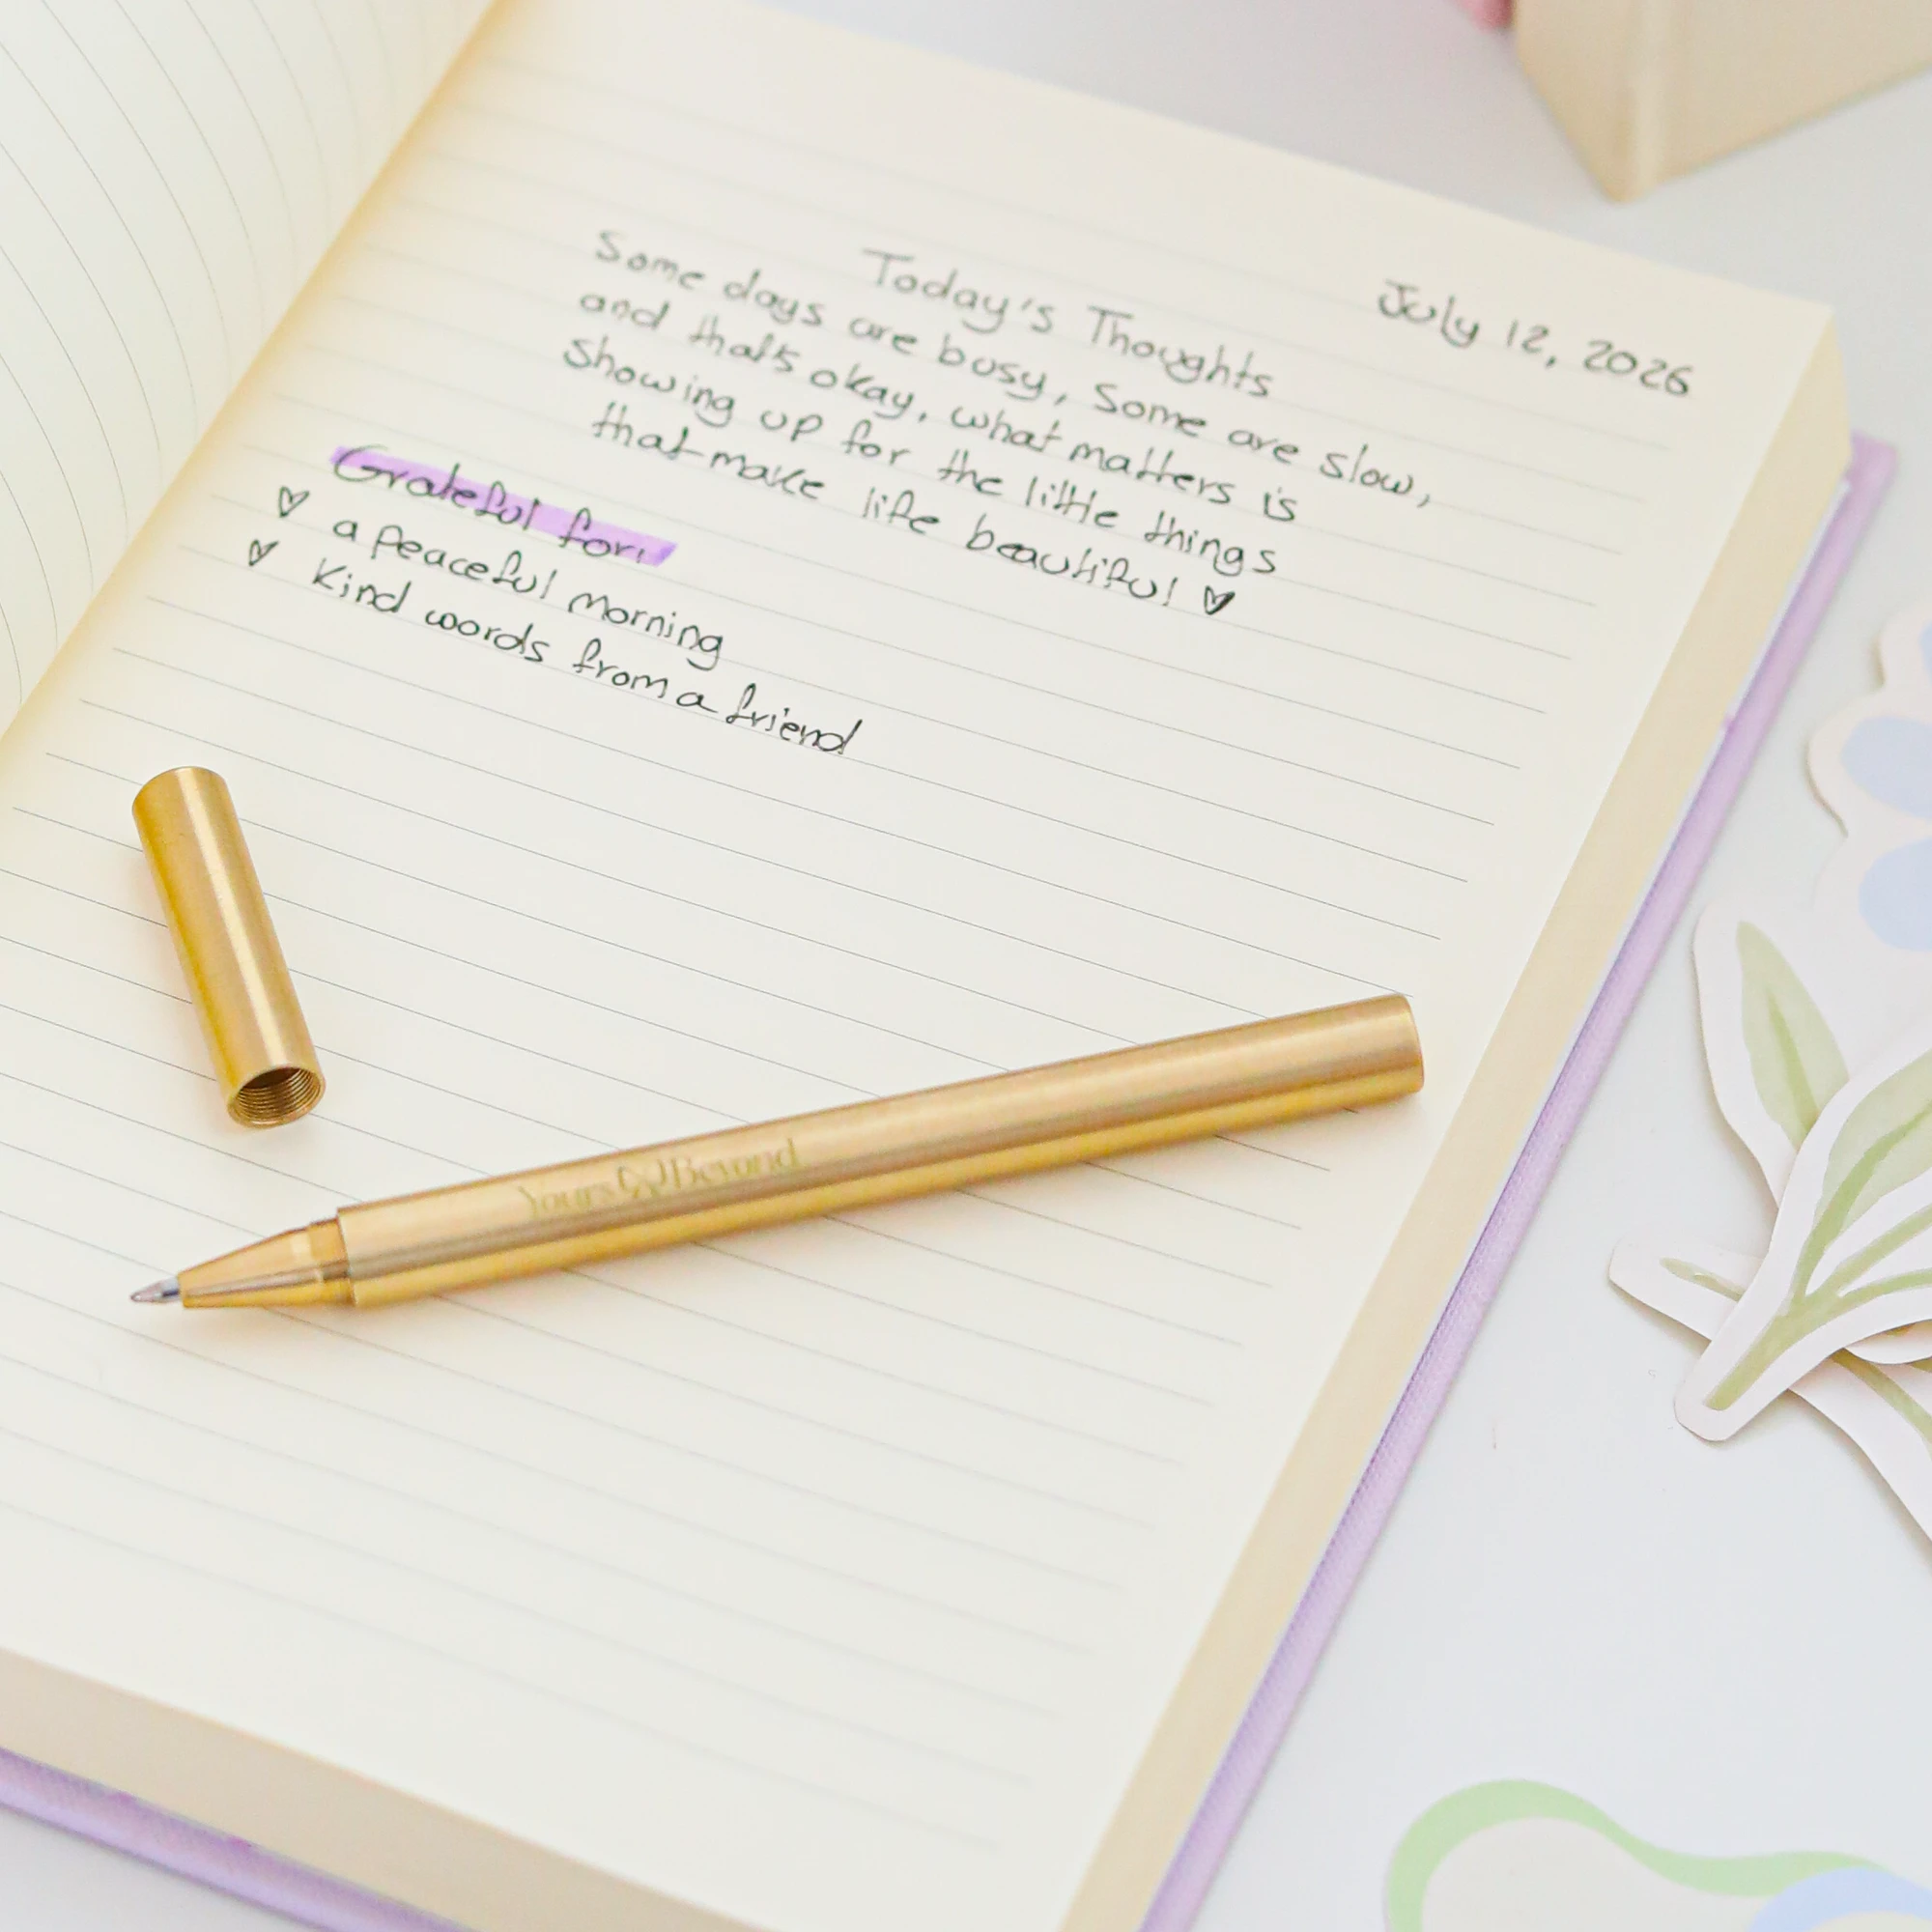 July 12, 2026
Today's Thoughts
Some days are busy, Some are slow,
and that's okay, what matters is
Showing up for the little things
that make life beautiful ♡
Grateful for:
♡ a peaceful morning
♡ Kind words from a friend
Yours & Beyond